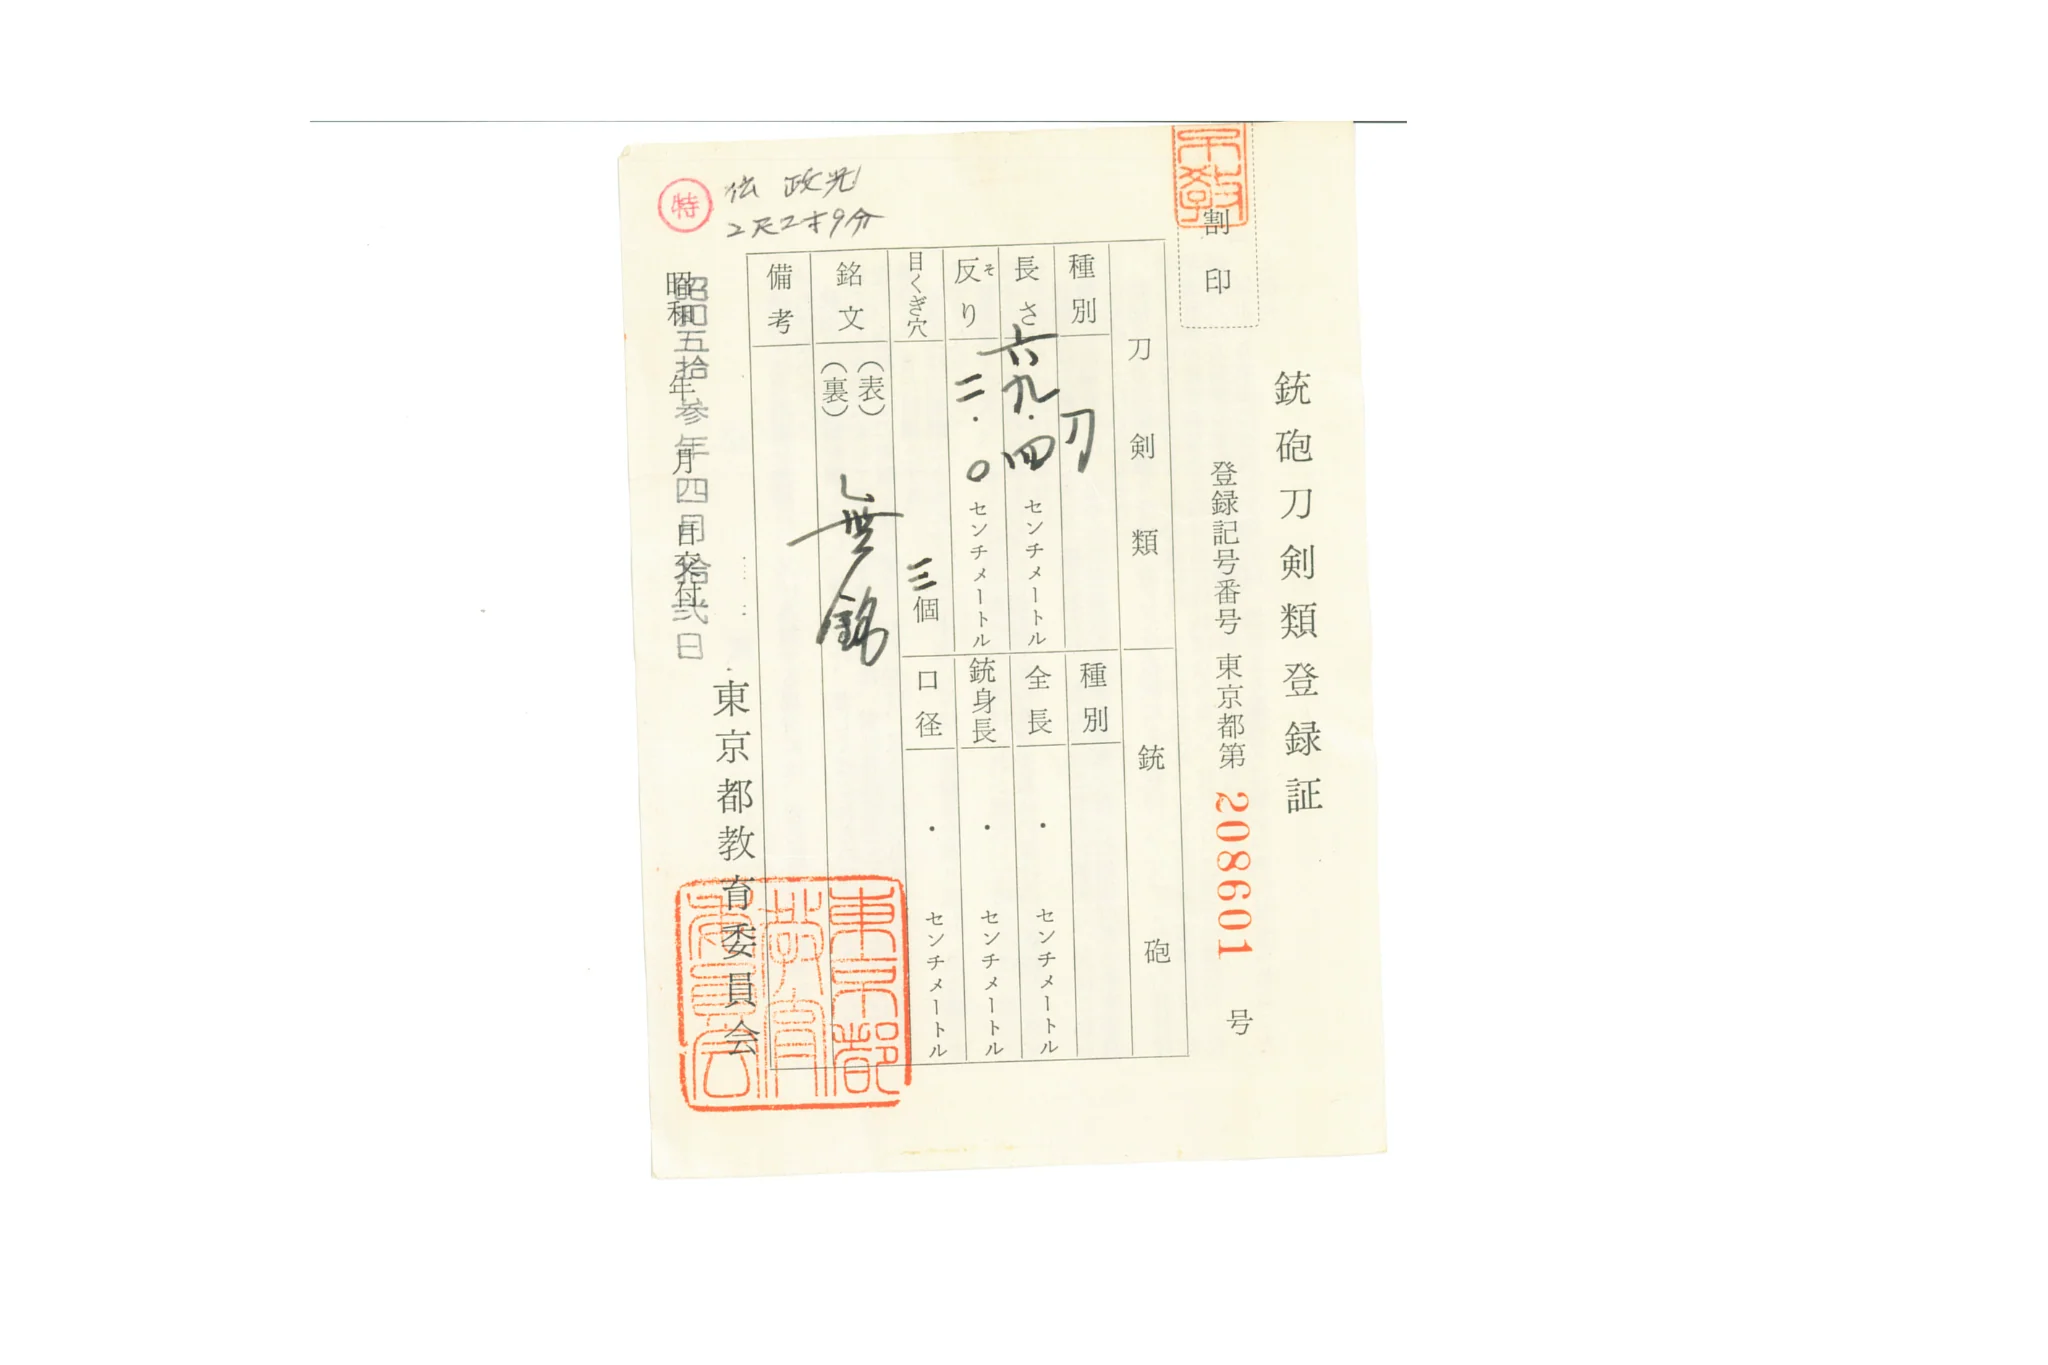 銃砲刀剣類登録証
割印
登録記号番号 東京都第 208601 号
刀剣類
種別 刀
長さ 六九.四 センチメートル
反り そ 二.〇 センチメートル
目くぎ穴 三個
銘文 (表) (裏) 無銘
備考
銃砲
種別
全長 ・ センチメートル
銃身長 ・ センチメートル
口径 ・ センチメートル
特
伝 政光
2尺2寸9分
昭和 年 月 日交付
昭和五拾参年四月拾弐日
東京都教育委員会
東京都
教育
委員会